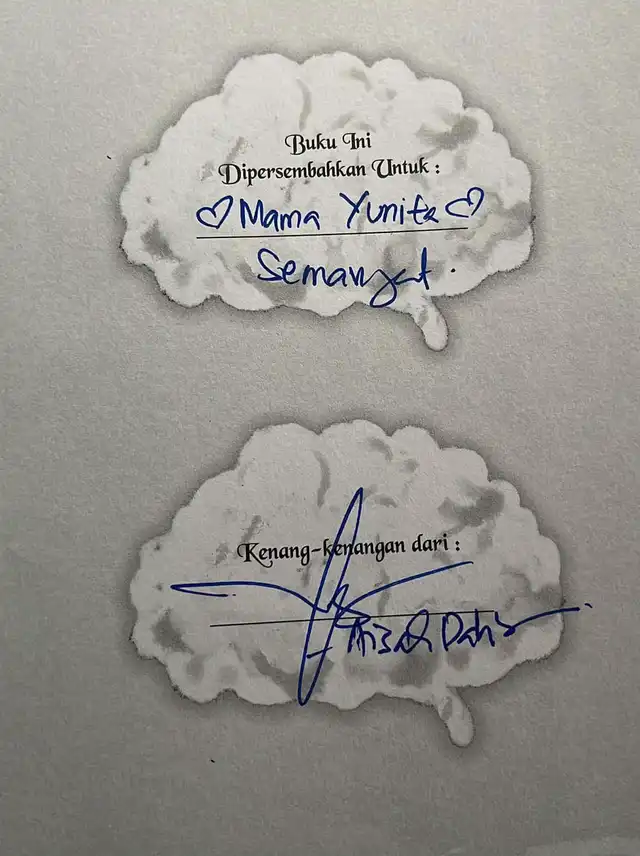 Buku Ini
Dipersembahkan Untuk :
♡ Mama Yunita ♡
Semangat.
Kenang-kenangan dari :